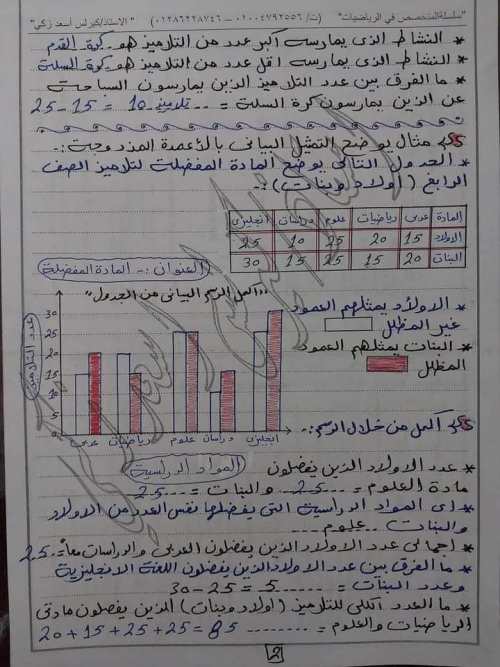 "سلسلة المتخصص في الرياضيات" (ت/ ٠١٠٠٤٧٩٢٥٥٦ - ٠١٢٨٦٢٢٨٧٤٦) "الاستاذ/كيرلس أسعد زكي"
* النشاط الذى يمارسه أكبر عدد من التلاميذ هو.كرة القدم
* النشاط الذى يمارسه اقل عدد من التلاميذ هو.كرة السلة
* ما الفرق بين عدد التلاميذ الذين يمارسون السباحة
عن الذين يمارسون كرة السلة = .. تلاميذ 10 = 15 - 25
مثال يوضح التمثيل البيانى بالأعمدة المزدوجة:-
* الجدول التالى يوضح المادة المفضلة لتلاميذ الصف
الرابع (اولاد وبنات):-
المادة عربى رياضيات علوم دراسات انجليزى
الاولاد 15 20 25 10 25
البنات 20 15 25 15 30
العنوان :- المادة المفضلة
"أكمل الرسم البيانى من الجدول"
* الاولاد يمثلهم العمود
غير المظلل
* البنات يمثلهم العمود
المظلل
عدد التلاميذ
30
25
20
15
10
5
0
عربى رياضيات علوم دراسات انجليزى
المواد الدراسية
أكمل من خلال الرسم:-
* عدد الاولاد الذين يفضلون
مادة العلوم = ...25... والبنات = ...25
* اى المواد الدراسية التى يفضلها نفس العدد من الاولاد
والبنات ..علوم...
* اجمالى عدد الاولاد الذين يفضلون العربى والدراسات معاً=.25
* ما الفرق بين عدد الاولاد الذين يفضلون اللغة الانجليزية
وعدد البنات = ......5 = 25 - 30
* ما العدد الكلى للتلاميذ (اولاد وبنات) الذين يفضلون مادتى
الرياضيات والعلوم = ........ 85 = 25 + 25 + 15 + 20
2